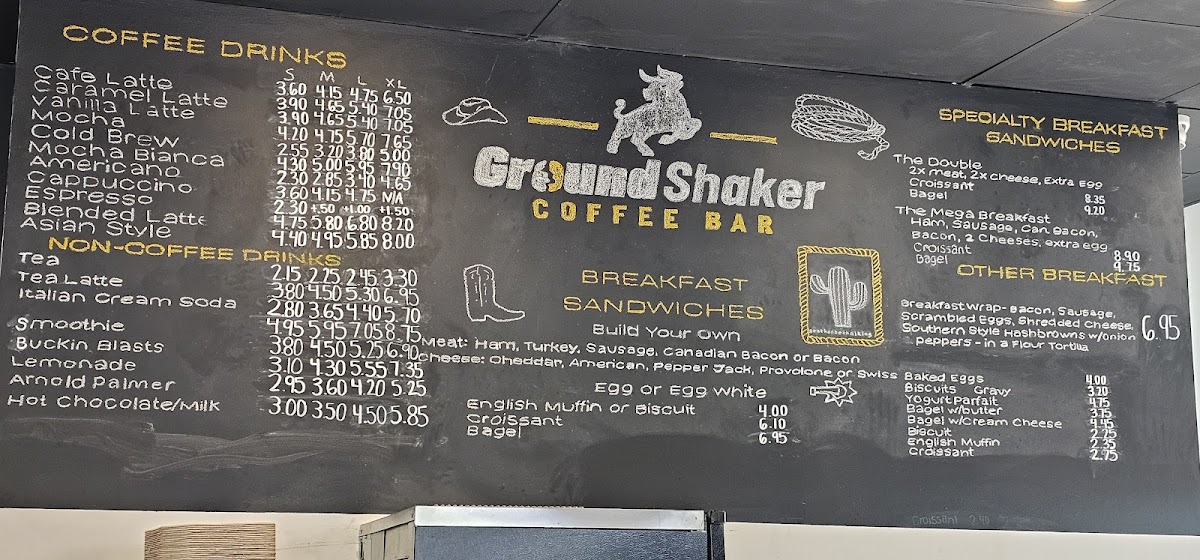 COFFEE DRINKS
S M L XL
Cafe Latte 3.60 4.15 4.75 6.50
Caramel Latte 3.90 4.65 5.40 7.05
Vanilla Latte 3.90 4.65 5.40 7.05
Mocha 4.20 4.75 5.70 7.65
Cold Brew 2.55 3.20 3.80 5.00
Mocha Bianca 4.30 5.00 5.95 7.90
Americano 2.30 2.85 3.40 4.65
Cappuccino 3.60 4.15 4.75 N/A
Espresso 2.30 +.50 +1.00 +1.50
Blended Latte 4.75 5.80 6.80 8.20
Asian Style 4.40 4.95 5.85 8.00
NON-COFFEE DRINKS
Tea 2.15 2.25 2.45 3.30
Tea Latte 3.80 4.50 5.30 6.95
Italian Cream Soda 2.80 3.65 4.40 5.70
Smoothie 4.95 5.95 7.05 8.75
Buckin Blasts 3.80 4.50 5.25 6.90
Lemonade 3.10 4.30 5.55 7.35
Arnold Palmer 2.95 3.60 4.20 5.25
Hot Chocolate/Milk 3.00 3.50 4.50 5.85
Ground Shaker
COFFEE BAR
BREAKFAST
SANDWICHES
Build Your Own
Meat: Ham, Turkey, Sausage, Canadian Bacon or Bacon
Cheese: Cheddar, American, Pepper Jack, Provolone or Swiss
Egg or Egg White
English Muffin or Biscuit 4.00
Croissant 6.10
Bagel 6.95
SPECIALTY BREAKFAST
SANDWICHES
The Double
2x meat, 2x cheese, Extra Egg
Croissant 8.35
Bagel 9.20
The Mega Breakfast
Ham, Sausage, Can. Bacon,
Bacon, 2 Cheeses, extra egg
Croissant 8.90
Bagel 9.75
OTHER BREAKFAST
Breakfast Wrap- Bacon, Sausage,
Scrambled Eggs, Shredded Cheese, 6.95
Southern Style Hashbrowns w/onion
peppers - in a Flour Tortilla
Baked Eggs 4.00
Biscuits Gravy 3.20
Yogurt Parfait 4.75
Bagel w/butter 3.75
Bagel w/Cream Cheese 4.45
Biscuit 2.25
English Muffin 2.35
Croissant 2.75